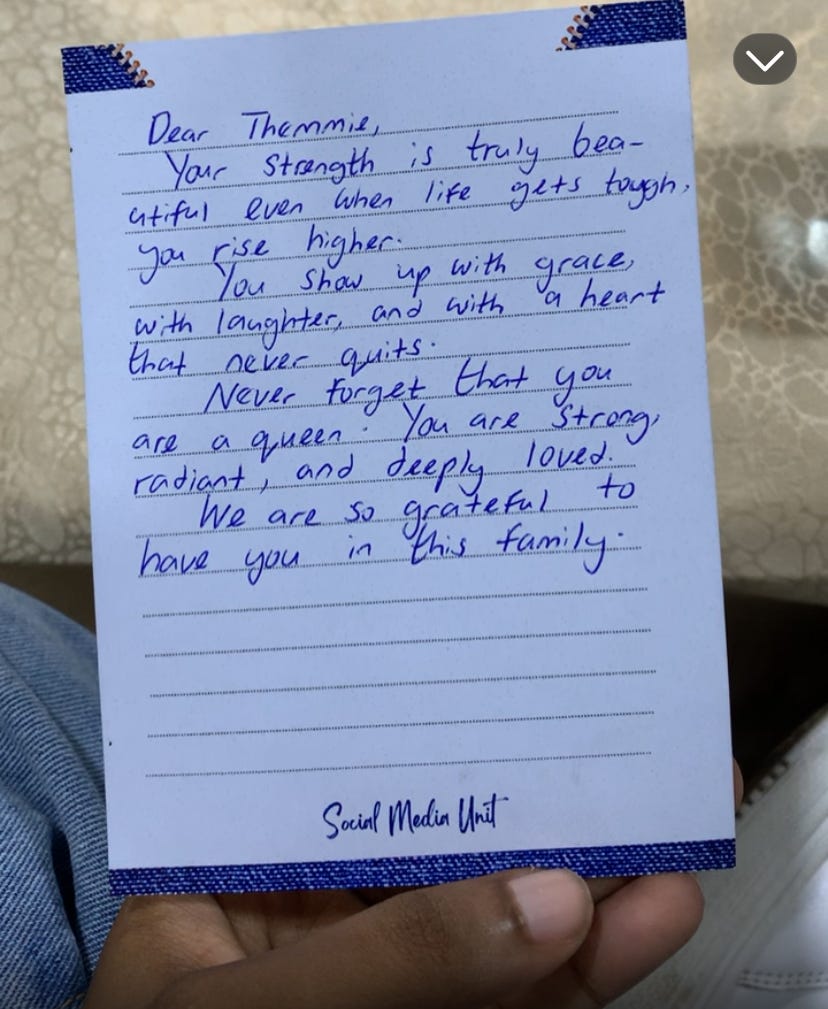 Dear Themmie,
Your Strength is truly bea-
utiful even when life gets tough,
you rise higher.
You show up with grace,
with laughter, and with a heart
that never quits.
Never forget that you
are a queen. You are strong,
radiant, and deeply loved.
We are so grateful to
have you in this family.
Social Media Unit